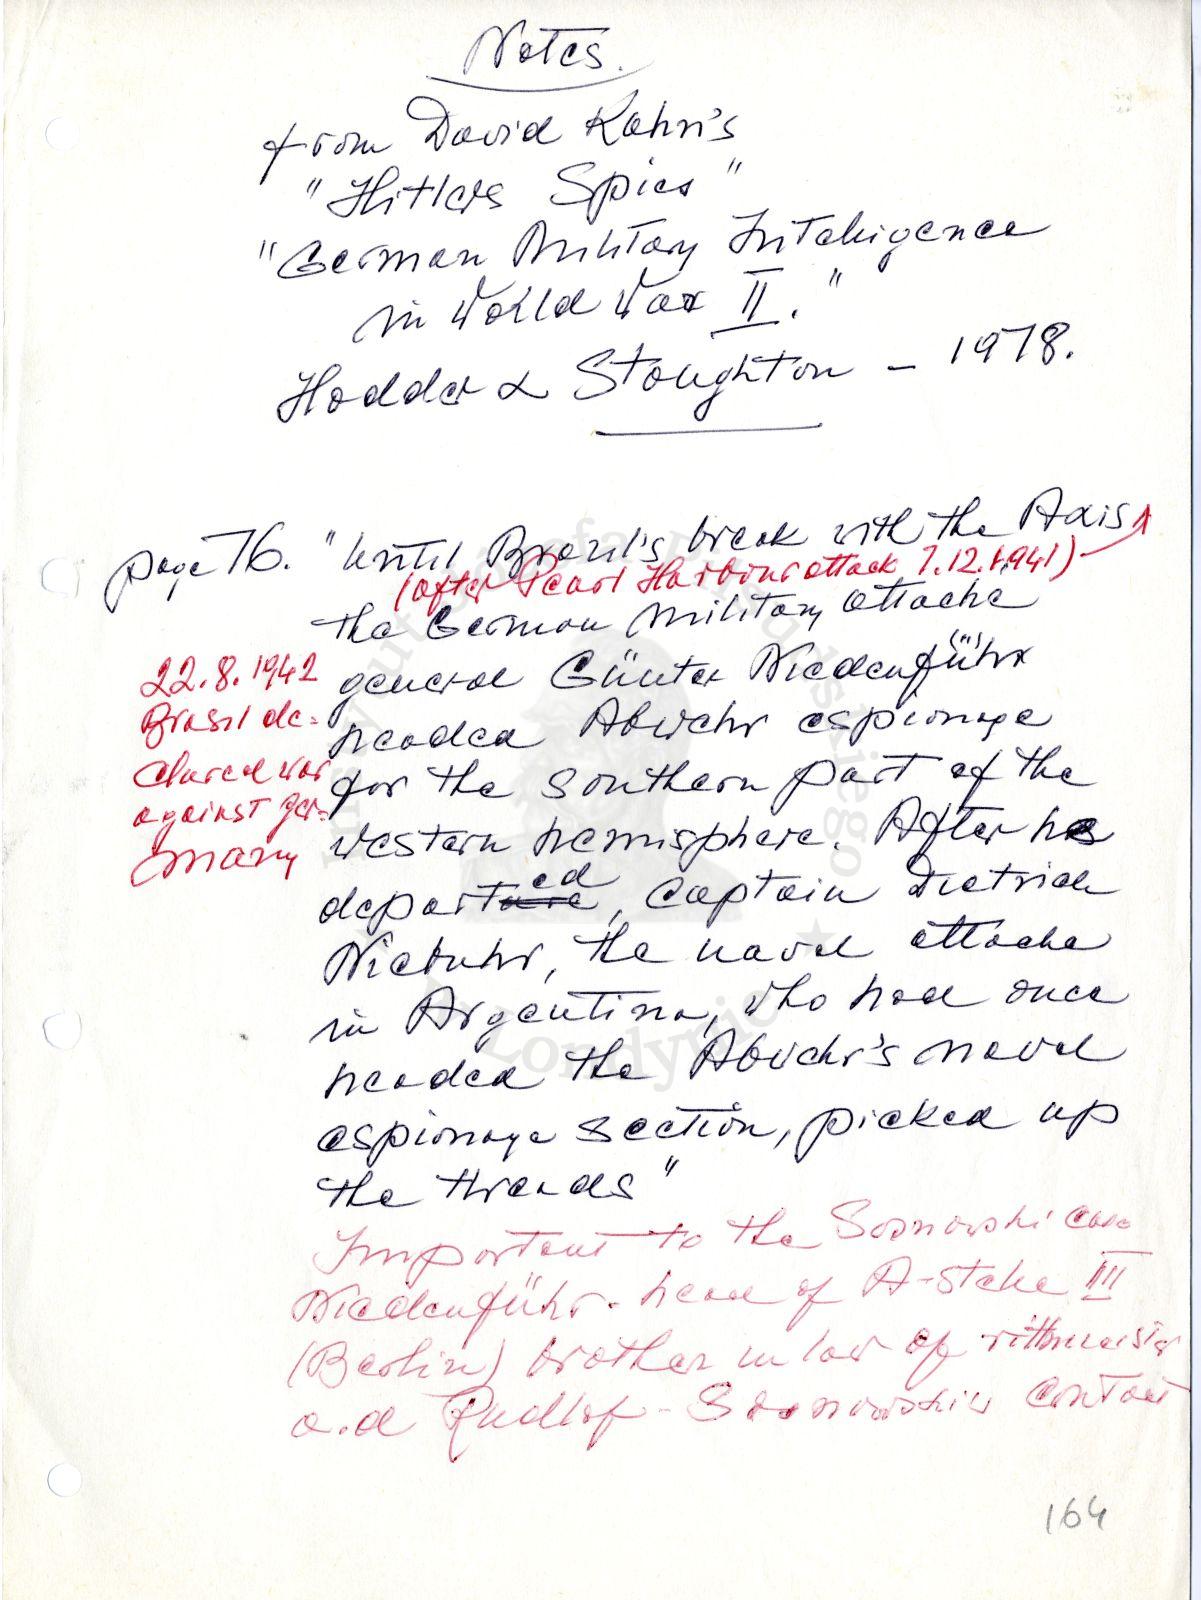 Notes.
from David Kahn's
"Hitlers Spies"
"German Military Intelligence
in World War II."
Hodder & Stoughton – 1978.
page 76. "Until Brazil's break with the Axis
(after Pearl Harbour attack 7.12.1941)
the German Military attache
general Günter Niedenführ
headed Abwehr espionage
for the southern part of the
western hemisphere. After he
departed, Captain Dietrich
Niebuhr, the naval attache
in Argentina, who had once
headed the Abwehr's naval
espionage section, picked up
the threads"
22.8.1942
Brasil de-
clared war
against Ger-
many
Important to the Sosnowski case
Niedenführ - head of A-Stelle III
(Berlin) brother in law of rittmeister
a.d Rudlof - Sosnowskis contact
164
Instytut Józefa Piłsudskiego
w Londynie